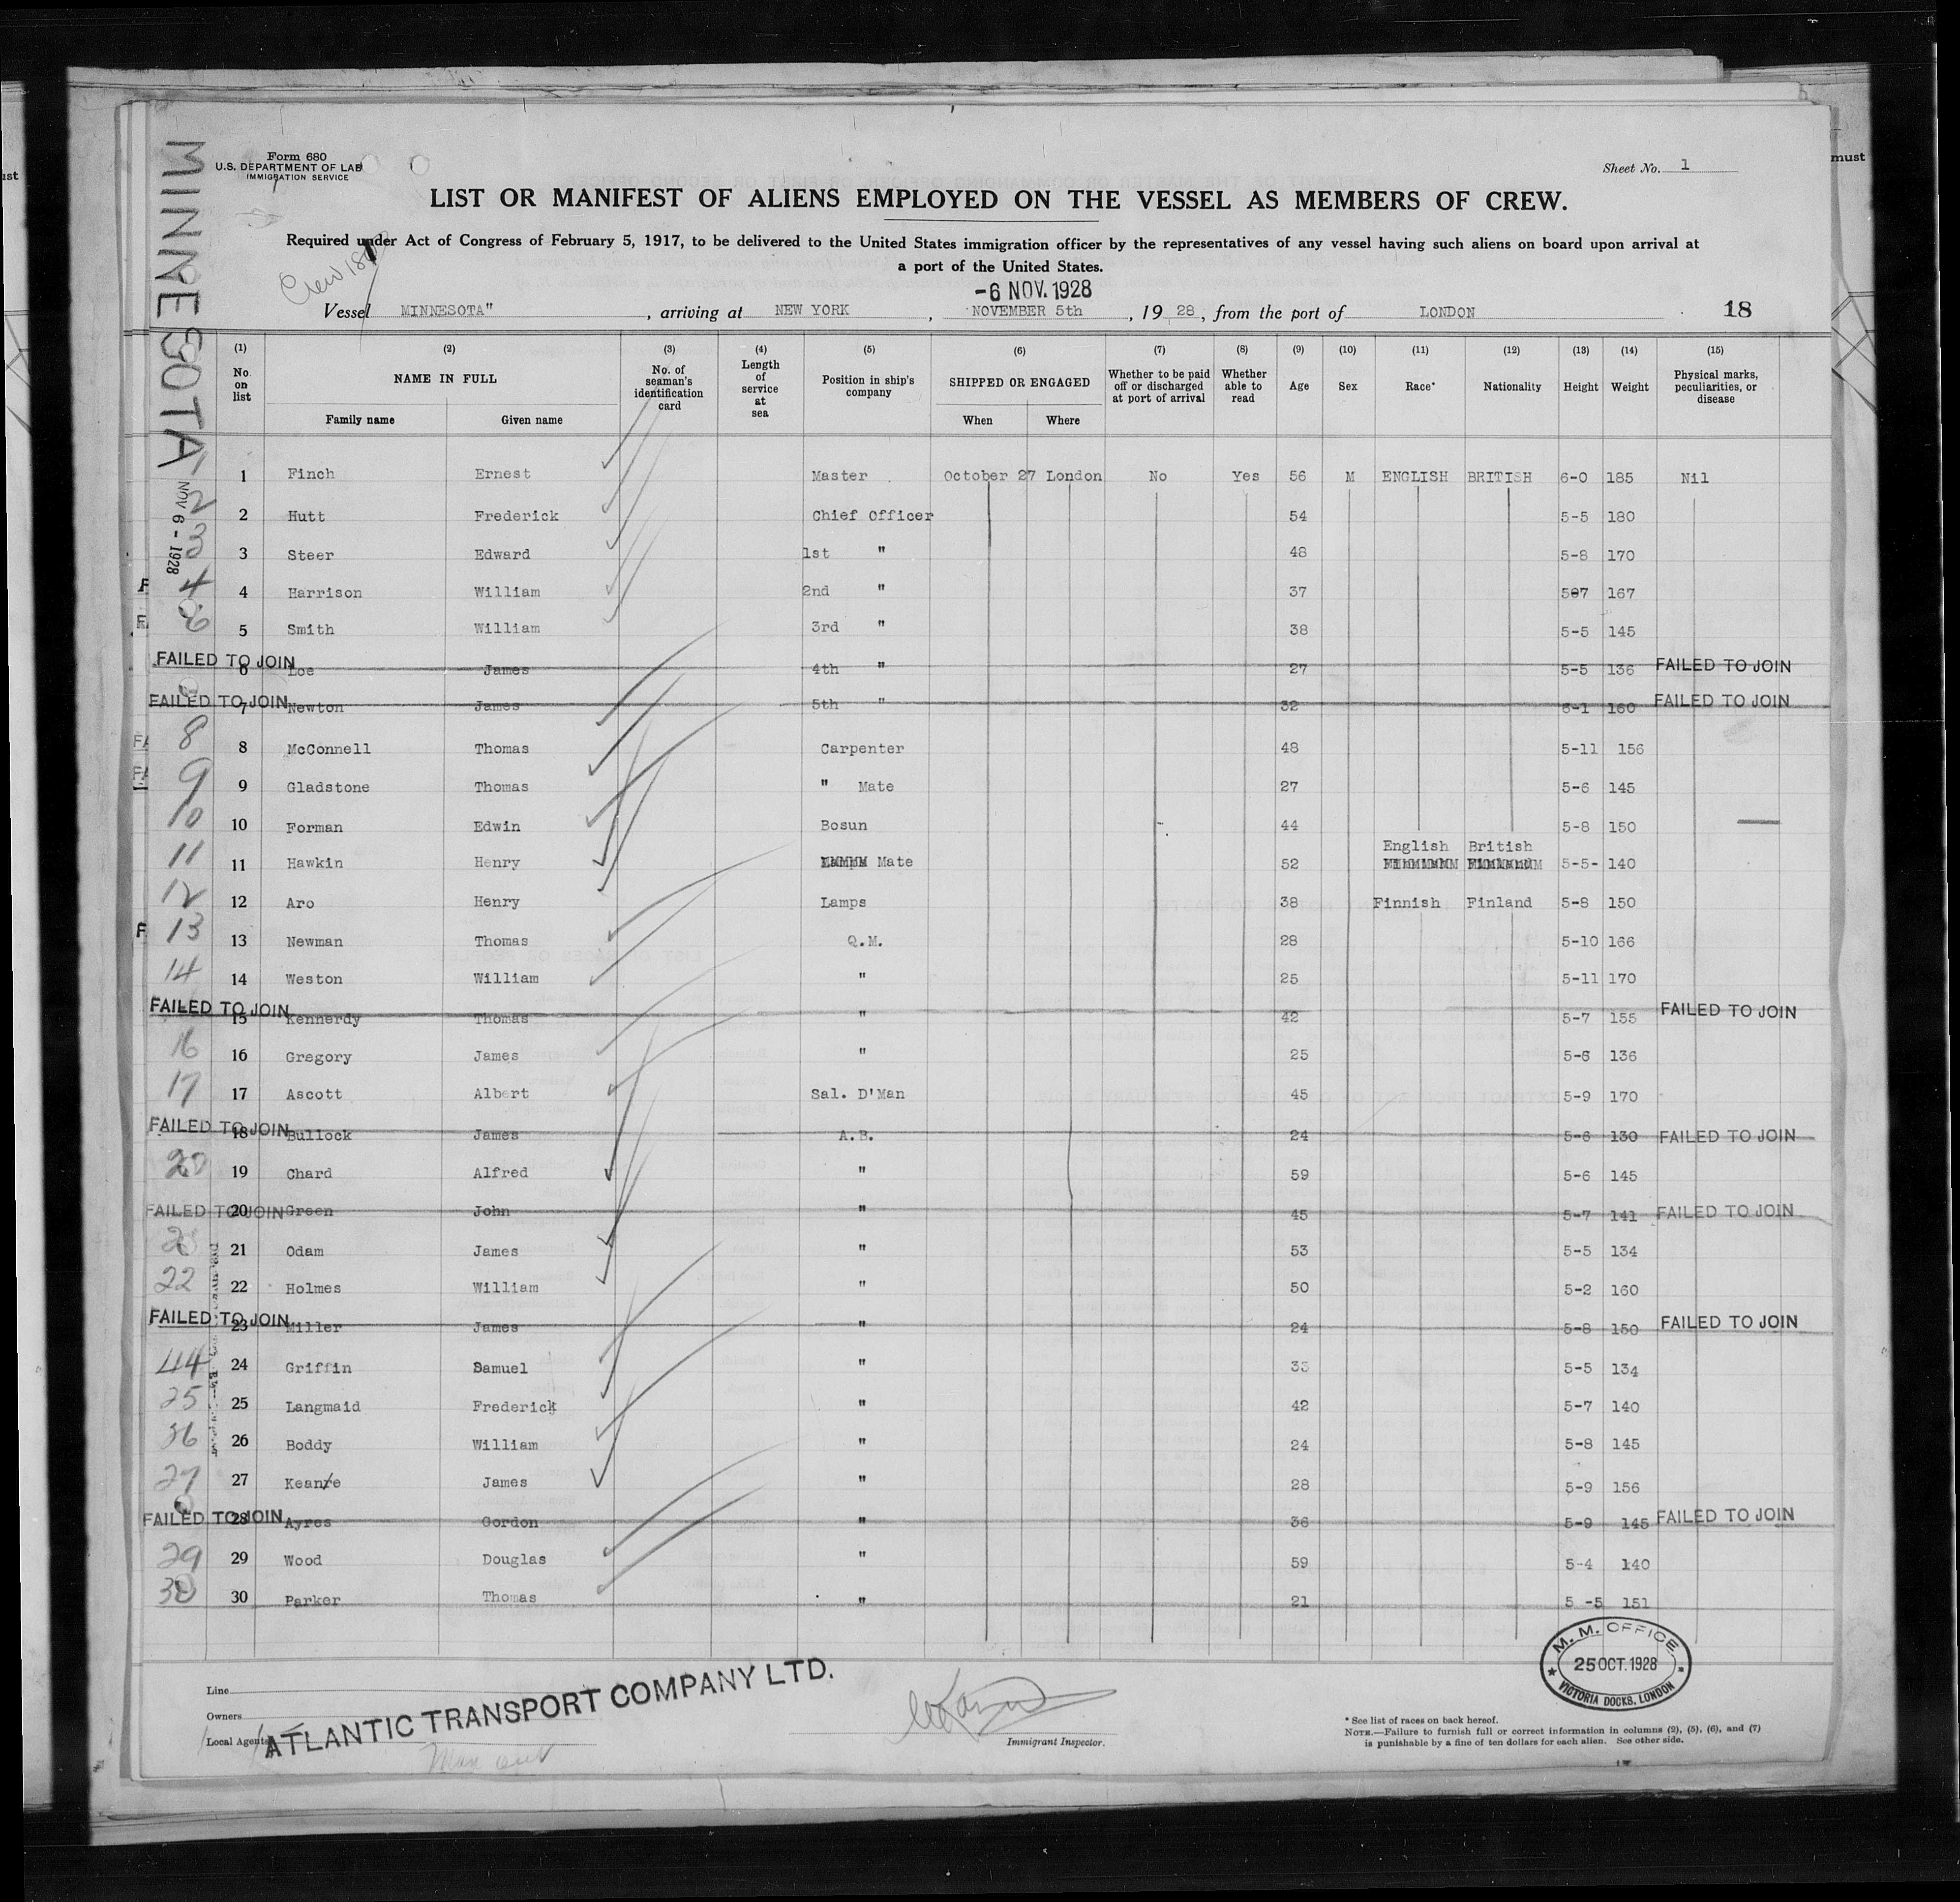 Form 680
U.S. DEPARTMENT OF LAB
IMMIGRATION SERVICE
Sheet No. 1
MINNESOTA
NOV 6 - 1928
LIST OR MANIFEST OF ALIENS EMPLOYED ON THE VESSEL AS MEMBERS OF CREW.
Required under Act of Congress of February 5, 1917, to be delivered to the United States immigration officer by the representatives of any vessel having such aliens on board upon arrival at
a port of the United States.
Crew
-6 NOV. 1928
Vessel MINNESOTA" , arriving at NEW YORK , NOVEMBER 5th , 19 28 , from the port of LONDON 18
(1) No. on list (2) NAME IN FULL Family name Given name (3) No. of seaman's identification card (4) Length of service at sea (5) Position in ship's company (6) SHIPPED OR ENGAGED When Where (7) Whether to be paid off or discharged at port of arrival (8) Whether able to read (9) Age (10) Sex (11) Race* (12) Nationality (13) Height (14) Weight (15) Physical marks, peculiarities, or disease
1 Finch Ernest Master October 27 London No Yes 56 M ENGLISH BRITISH 6-0 185 Nil
2 2 Hutt Frederick Chief Officer 54 5-5 180
3 3 Steer Edward 1st " 48 5-8 170
4 4 Harrison William 2nd " 37 507 167
5 Smith William 3rd " 38 5-5 145
FAILED TO JOIN 6 Loe James 4th " 27 5-5 136 FAILED TO JOIN
FAILED TO JOIN 7 Newton James 5th " 32 6-1 160 FAILED TO JOIN
8 8 McConnell Thomas Carpenter 48 5-11 156
9 9 Gladstone Thomas " Mate 27 5-6 145
10 10 Forman Edwin Bosun 44 5-8 150
English British
11 11 Hawkin Henry Mate 52 5-5- 140
12 12 Aro Henry Lamps 38 Finnish Finland 5-8 150
13 13 Newman Thomas Q.M. 28 5-10 166
14 14 Weston William " 25 5-11 170
FAILED TO JOIN 15 Kennerdy Thomas " 42 5-7 155 FAILED TO JOIN
16 16 Gregory James " 25 5-6 136
17 17 Ascott Albert Sal. D'Man 45 5-9 170
FAILED TO JOIN 18 Bullock James A.B. 24 5-6 130 FAILED TO JOIN
19 Chard Alfred " 59 5-6 145
FAILED TO JOIN 20 Green John " 45 5-7 141 FAILED TO JOIN
21 Odam James " 53 5-5 134
22 22 Holmes William " 50 5-2 160
FAILED TO JOIN 23 Miller James " 24 5-8 150 FAILED TO JOIN
24 Griffin Samuel " 5-5 134
25 25 Langmaid Frederick " 42 5-7 140
26 Boddy William " 24 5-8 145
27 27 Keanre James " 28 5-9 156
FAILED TO JOIN 28 Ayres Gordon " 36 5-9 145 FAILED TO JOIN
29 29 Wood Douglas " 59 5-4 140
30 30 Parker Thomas " 21 5 -5 151
M. M. OFFICE
25 OCT. 1928
VICTORIA DOCKS, LONDON
Line
Owners
Local Agents
ATLANTIC TRANSPORT COMPANY LTD.
Immigrant Inspector.
* See list of races on back hereof.
NOTE.—Failure to furnish full or correct information in columns (2), (5), (6), and (7)
is punishable by a fine of ten dollars for each alien. See other side.
must